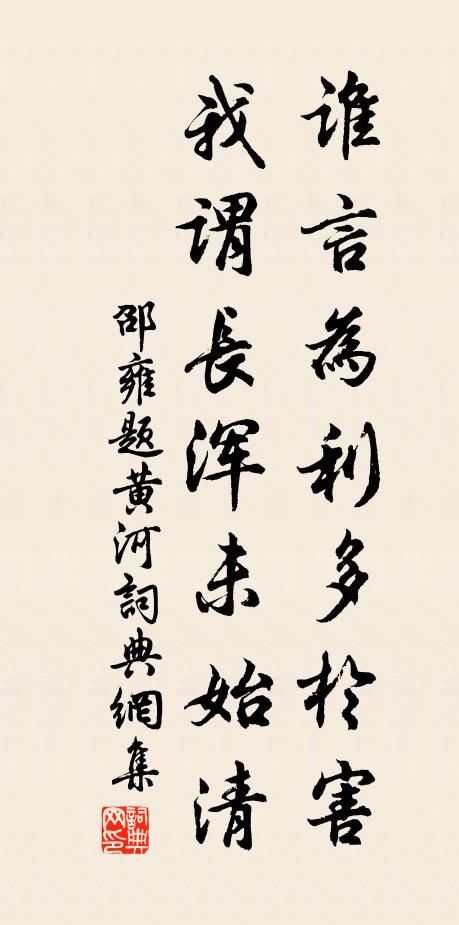 誰言為利多於害
我謂長渾未始清
邵雍題黃河詞典網集
詞典网印